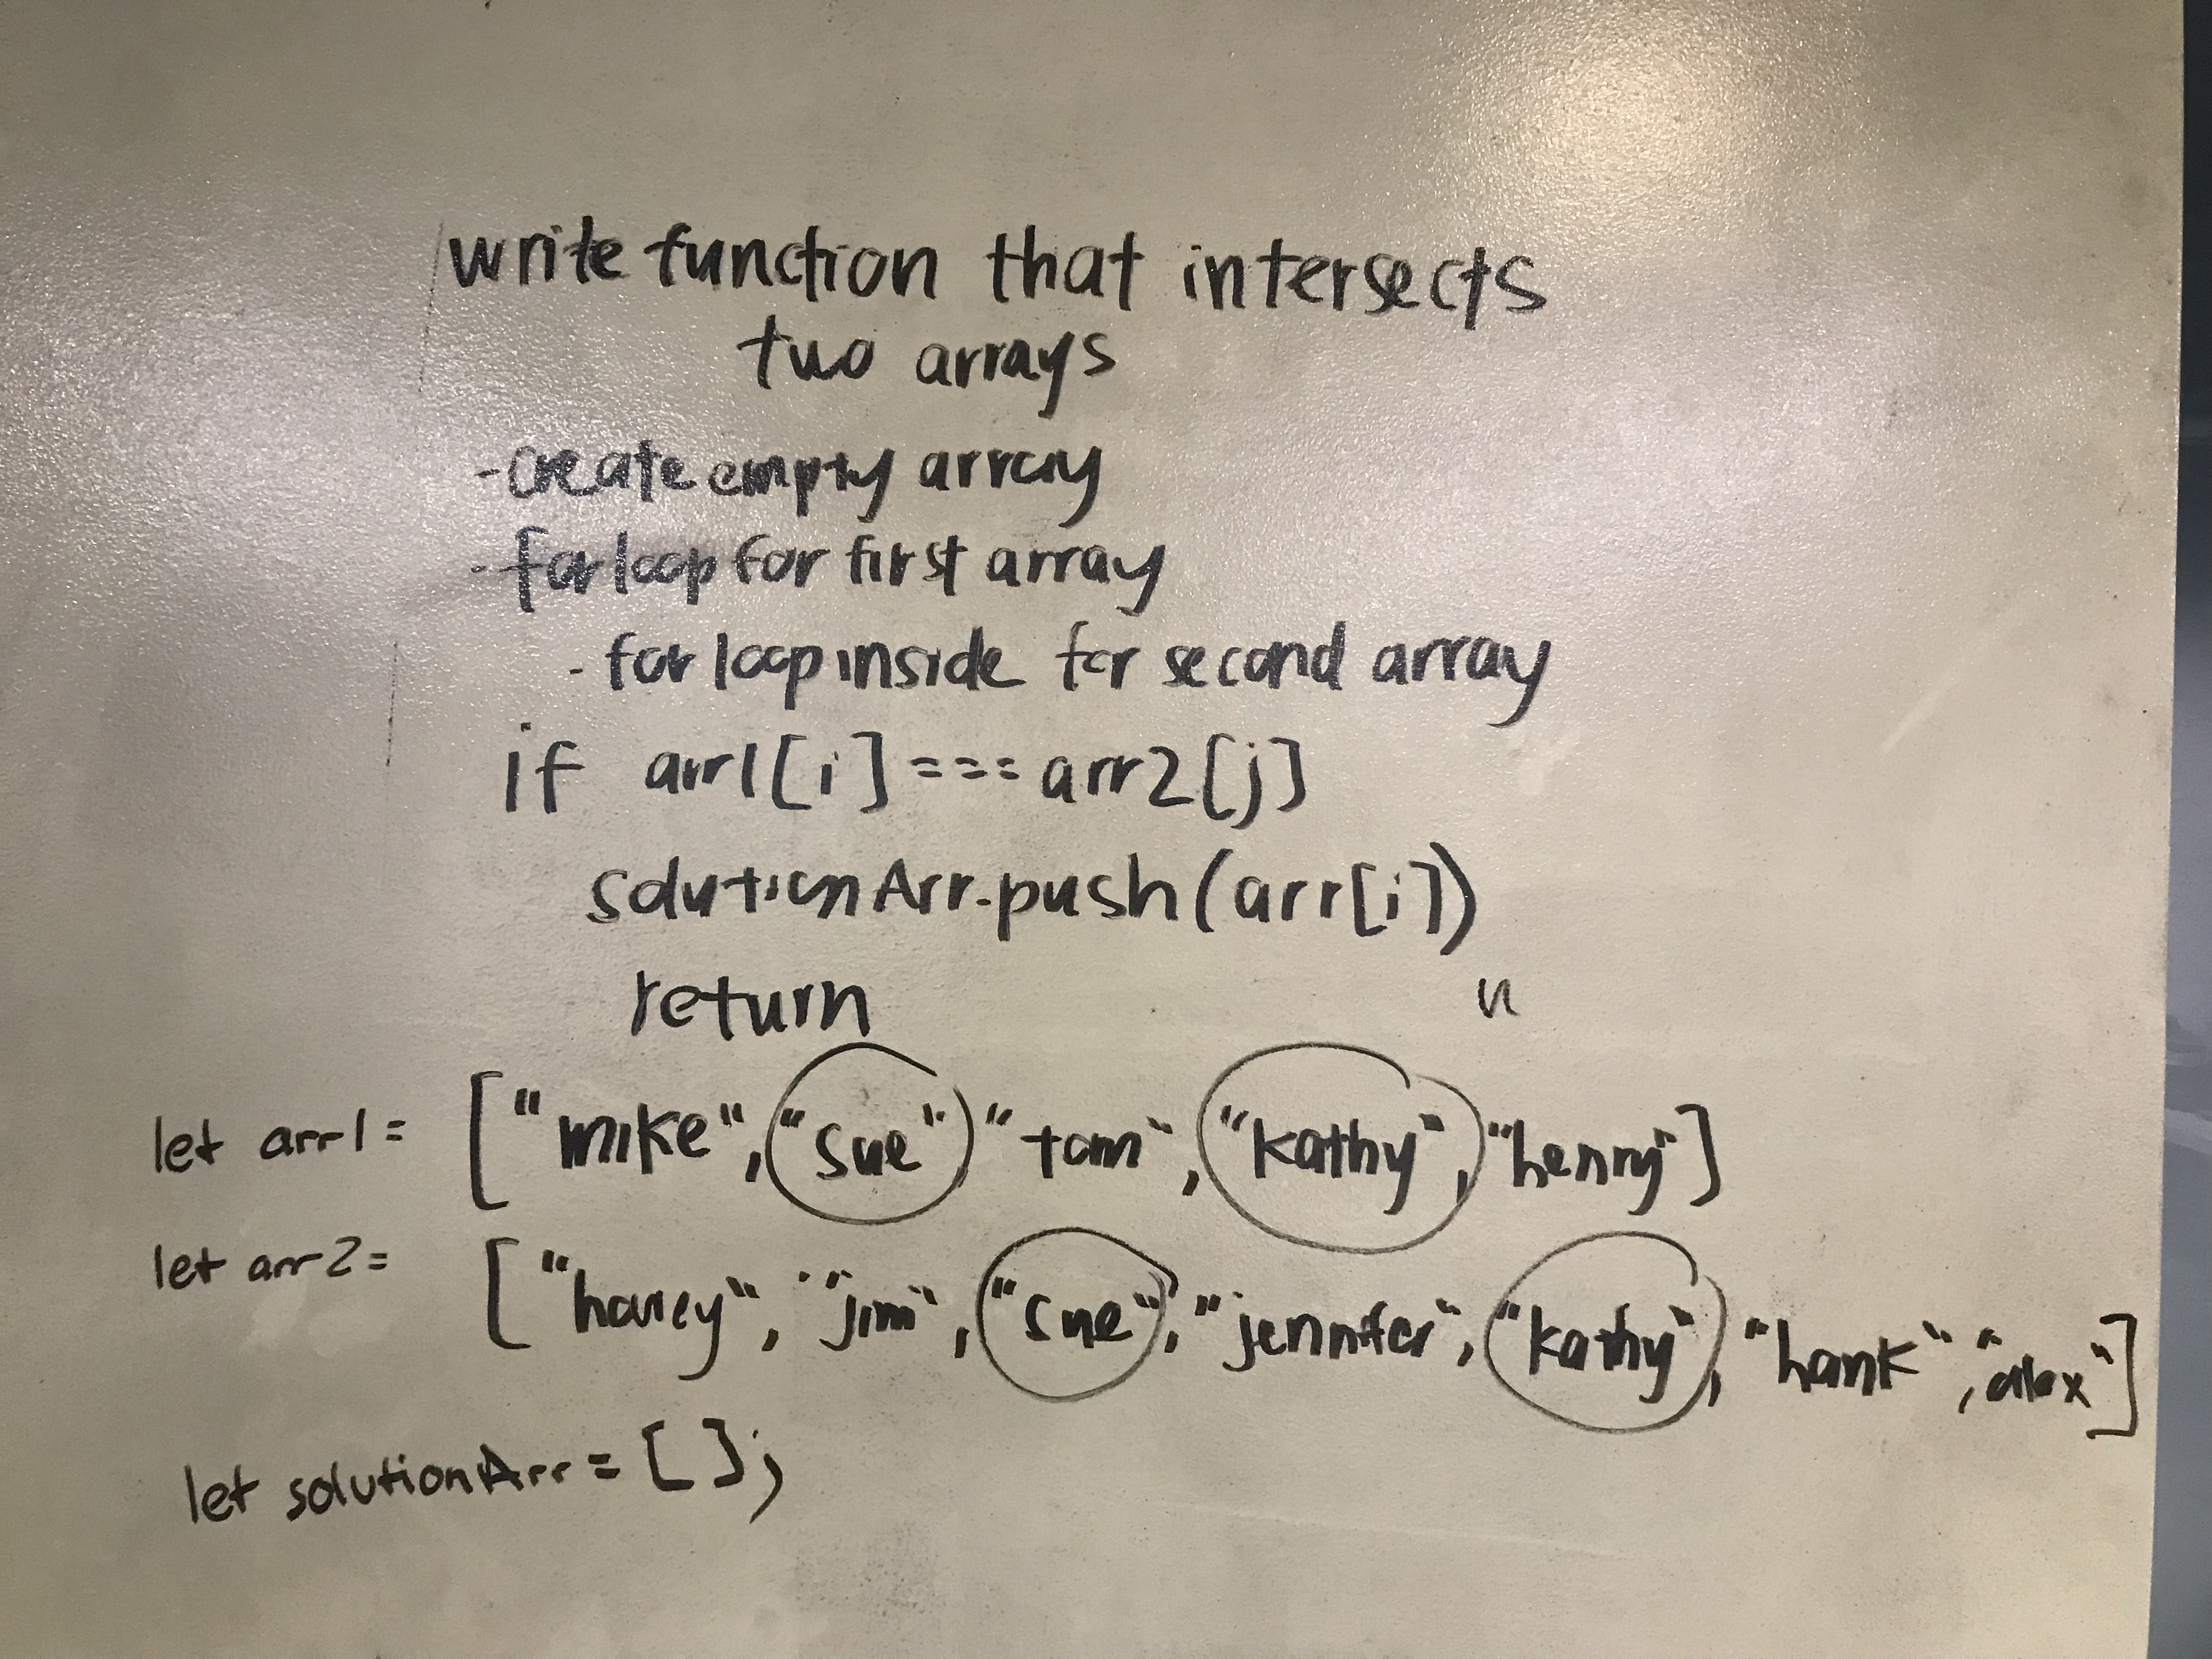 write function that intersects
two arrays
- create empty array
- for loop for first array
- for loop inside for second array
if arr1[i] === arr2[j]
solutionArr.push(arr[i])
return
let arr1 = ["mike", "sue", "tom", "kathy", "henry"]
let arr2 = ["harey", "jim", "sue", "jennifer", "kathy", "hank", "alex"]
let solutionArr = [];